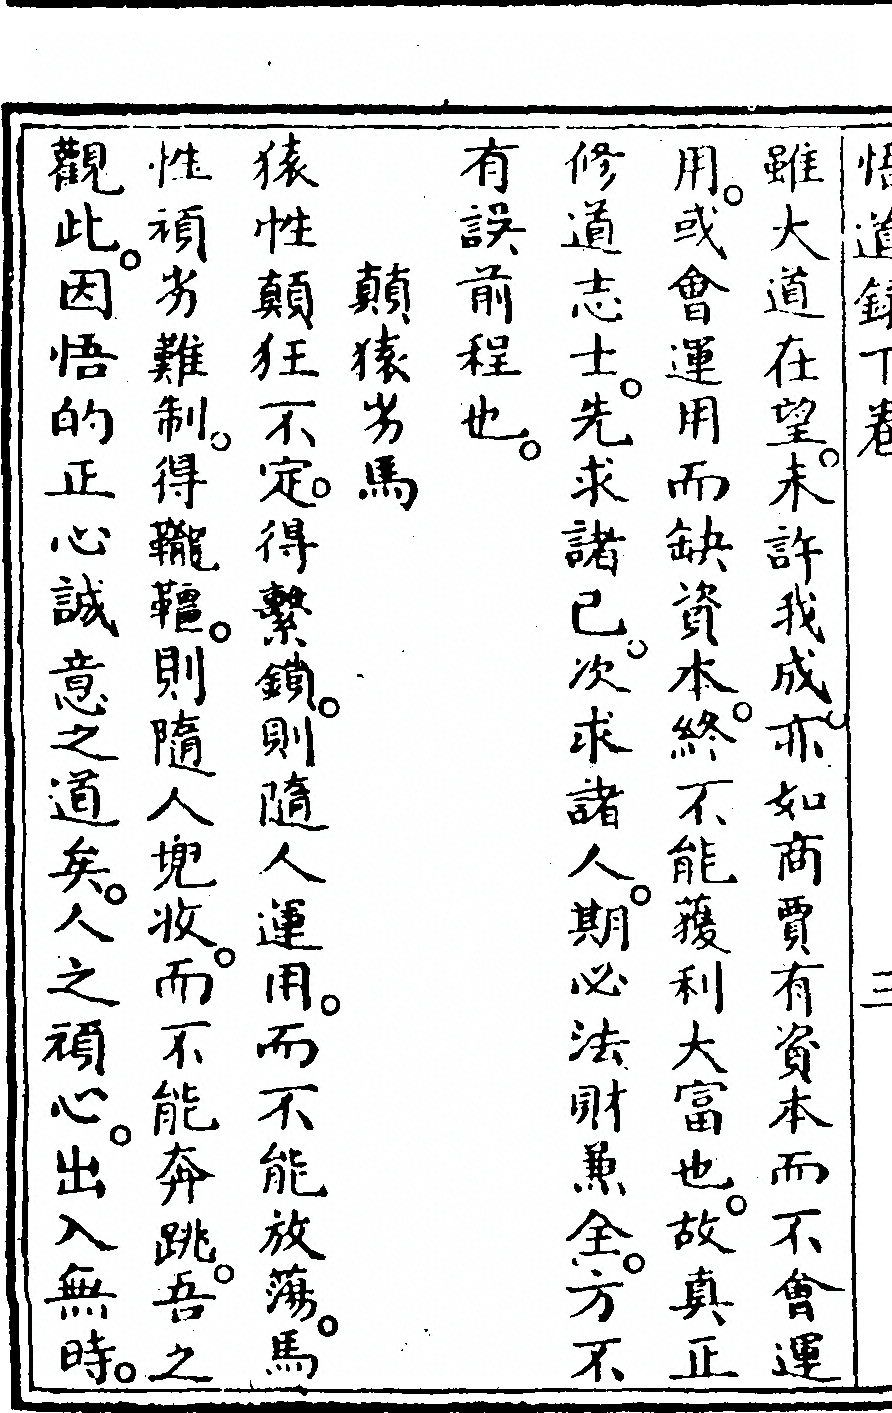 悟道録下卷 三
雖大道在望。未許我成。亦如商賈有資本而不會運
用。或會運用而缺資本。終不能獲利大富也。故真正
修道志士。先求諸己。次求諸人。期必法財兼全。方不
有誤前程也。
顛猿劣馬
猿性顛狂不定。得繫鎖。則隨人運用。而不能放蕩。馬
性頑劣難制。得韁。則隨人兜收。而不能奔跳。吾之
觀此。因悟的正心誠意之道矣。人之頑心。出入無時。